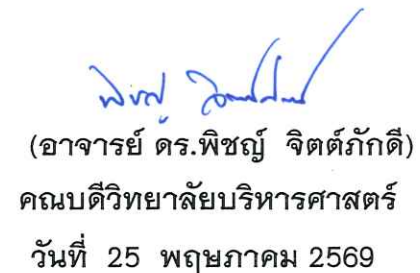 (อาจารย์ ดร.พิชญ์ จิตต์ภักดี)
คณบดีวิทยาลัยบริหารศาสตร์
วันที่ 25 พฤษภาคม 2569